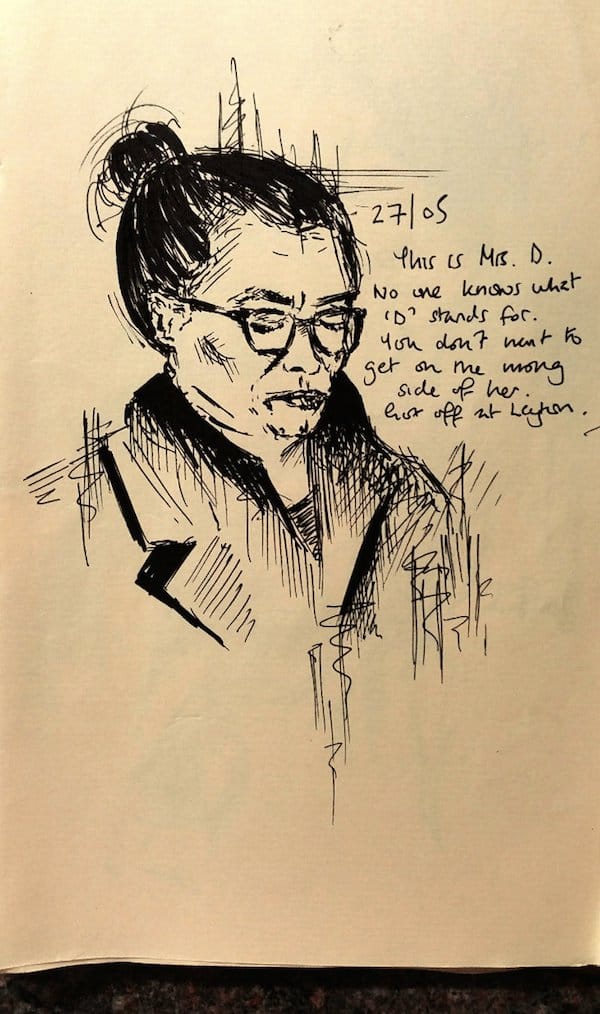 27/05
This is Mrs. D.
No one knows what
'D' stands for.
You don't want to
get on the wrong
side of her.
Got off at Leyton.